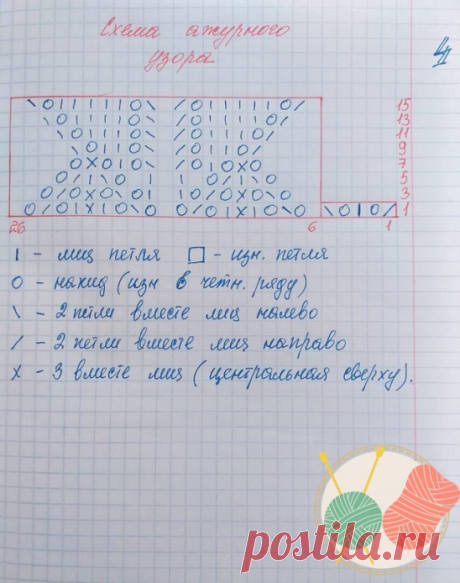 Схема ажурного
узора
\O|||||O\ /O|||||O/ 15
\O||||O\ /O||||O/ 13
\O|||O\ /O|||O/ 11
\O||O\ /O||O/ 9
OXO|O\ /O|OXO 7
O/|\O | | O/|\O 5
O/OXO\O| |O/OXO\O 3
O/O|X|O\O O/O|X|O\O \O|O/ 1
26 6 1
| - лиц петля □ - изн. петля
O - накид (изн в четн. ряду)
\ - 2 петли вместе лиц налево
/ - 2 петли вместе лиц направо
X - 3 вместе лиц (центральная сверху).
postila.ru